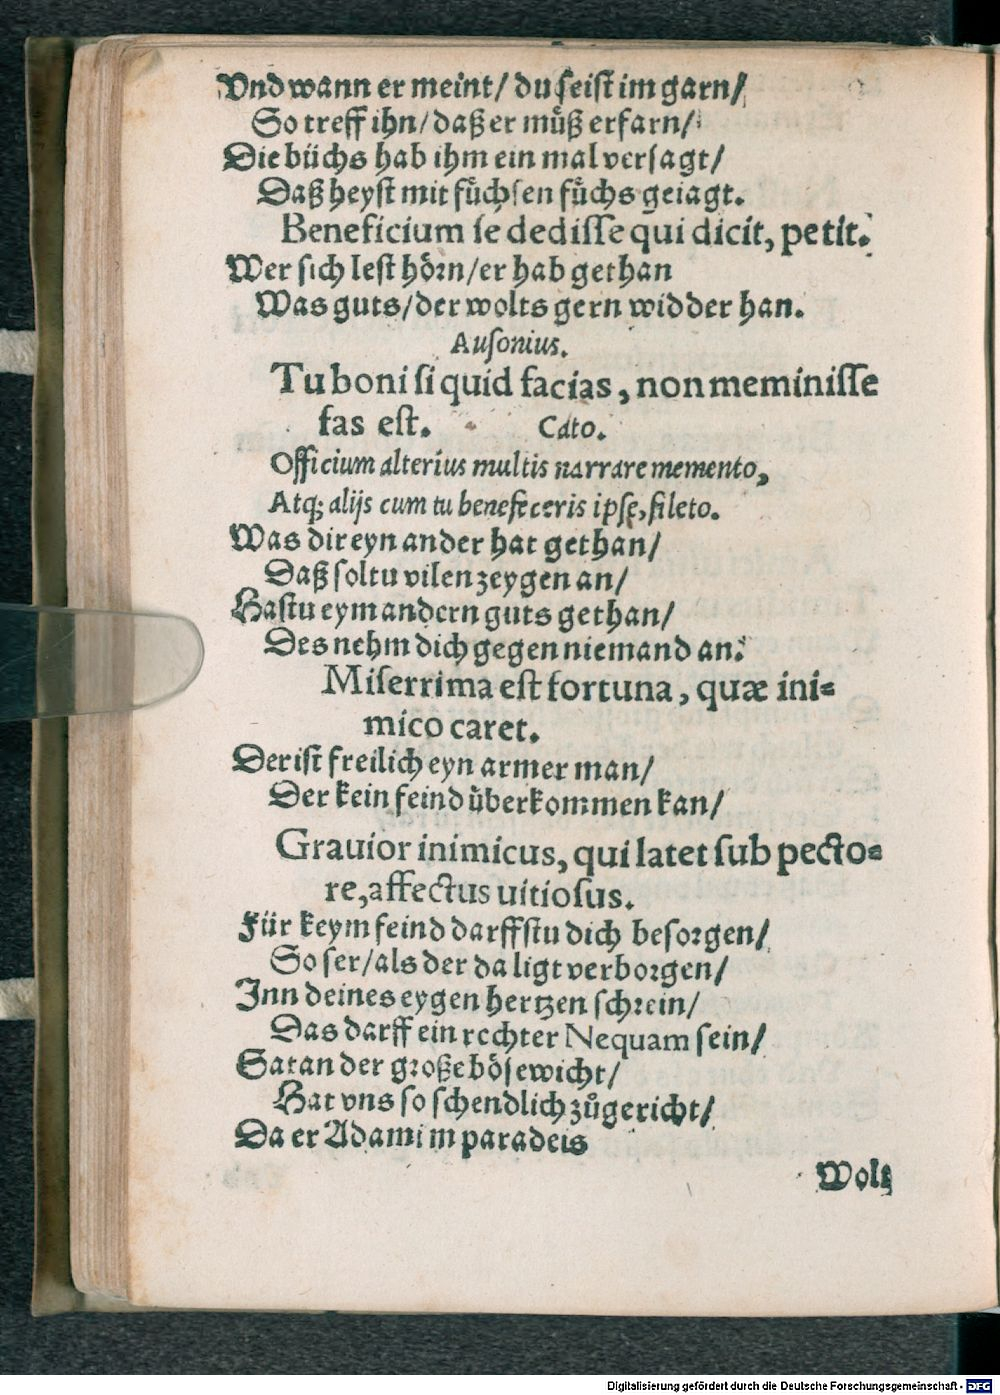 Vnd wann er meint/ du seist im garn/
So treff ihn/ daß er muͤß erfarn/
Die büchs hab ihm ein mal versagt/
Daß heyst mit fuͤchsen fuͤchs geiagt.
Beneficium se dedisse qui dicit, petit.
Wer sich lest hoͤrn/ er hab gethan
Was guts/ der wolts gern widder han.
Ausonius.
Tu boni si quid facias, non meminisse
fas est. Cato.
Officium alterius multis narrare memento,
Atq; alijs cum tu benefeceris ipse, sileto.
Was dir eyn ander hat gethan/
Daß soltu vilen zeygen an/
Hastu eym andern guts gethan/
Des nehm dich gegen niemand an.
Miserrima est fortuna, quæ ini=
mico caret.
Der ist freilich eyn armer man/
Der kein feind uͤberkommen kan/
Grauior inimicus, qui latet sub pecto=
re, affectus uitiosus.
Für keym feind darffstu dich besorgen/
So ser/ als der da ligt verborgen/
Inn deines eygen hertzen schrein/
Das darff ein rechter Nequam sein/
Satan der große boͤsewicht/
Hat vns so schendlich zuͦgericht/
Da er Adam im paradeis
Wolt
Digitalisierung gefördert durch die Deutsche Forschungsgemeinschaft - DFG